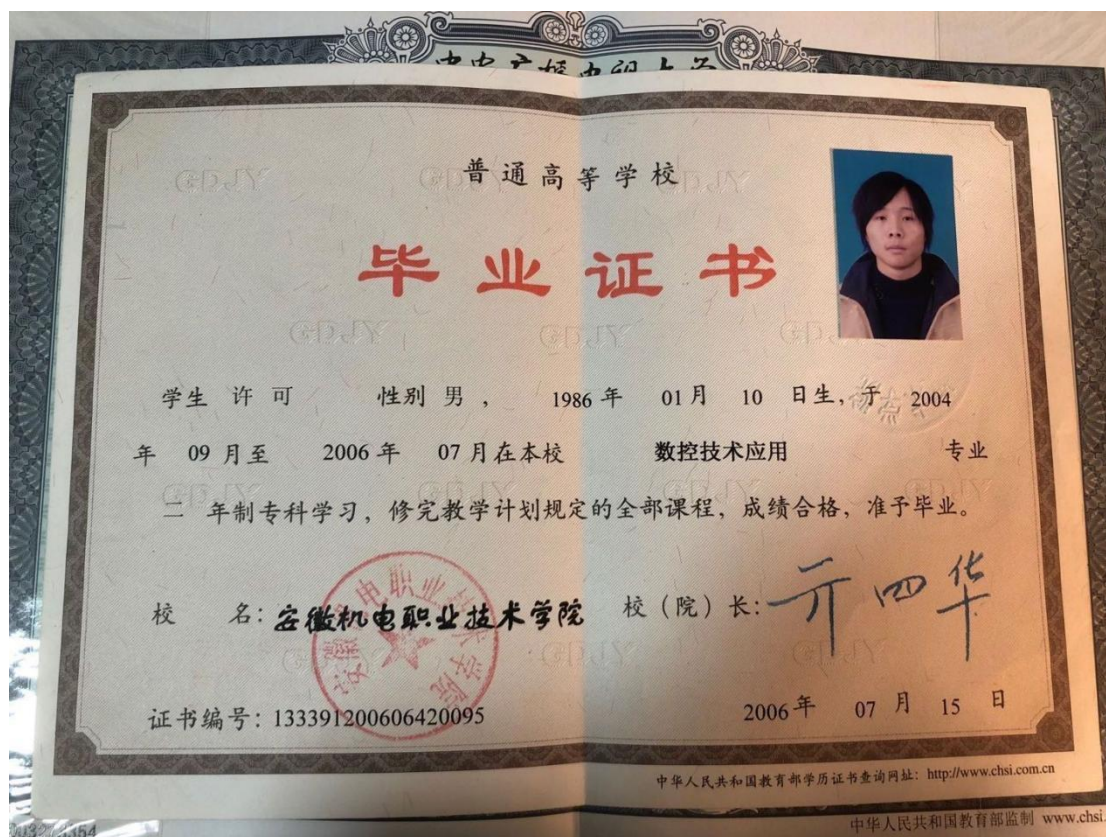 普通高等学校
毕业证书
学生 许可 性别 男 , 1986 年 01 月 10 日生, 于 2004
年 09 月至 2006 年 07 月在本校 数控技术应用 专业
二 年制专科学习, 修完教学计划规定的全部课程, 成绩合格, 准予毕业。
校 名: 安徽机电职业技术学院 校 (院) 长:
证书编号: 133391200606420095 2006 年 07 月 15 日
中华人民共和国教育部学历证书查询网址: http://www.chsi.com.cn
中华人民共和国教育部监制 www.chsi.